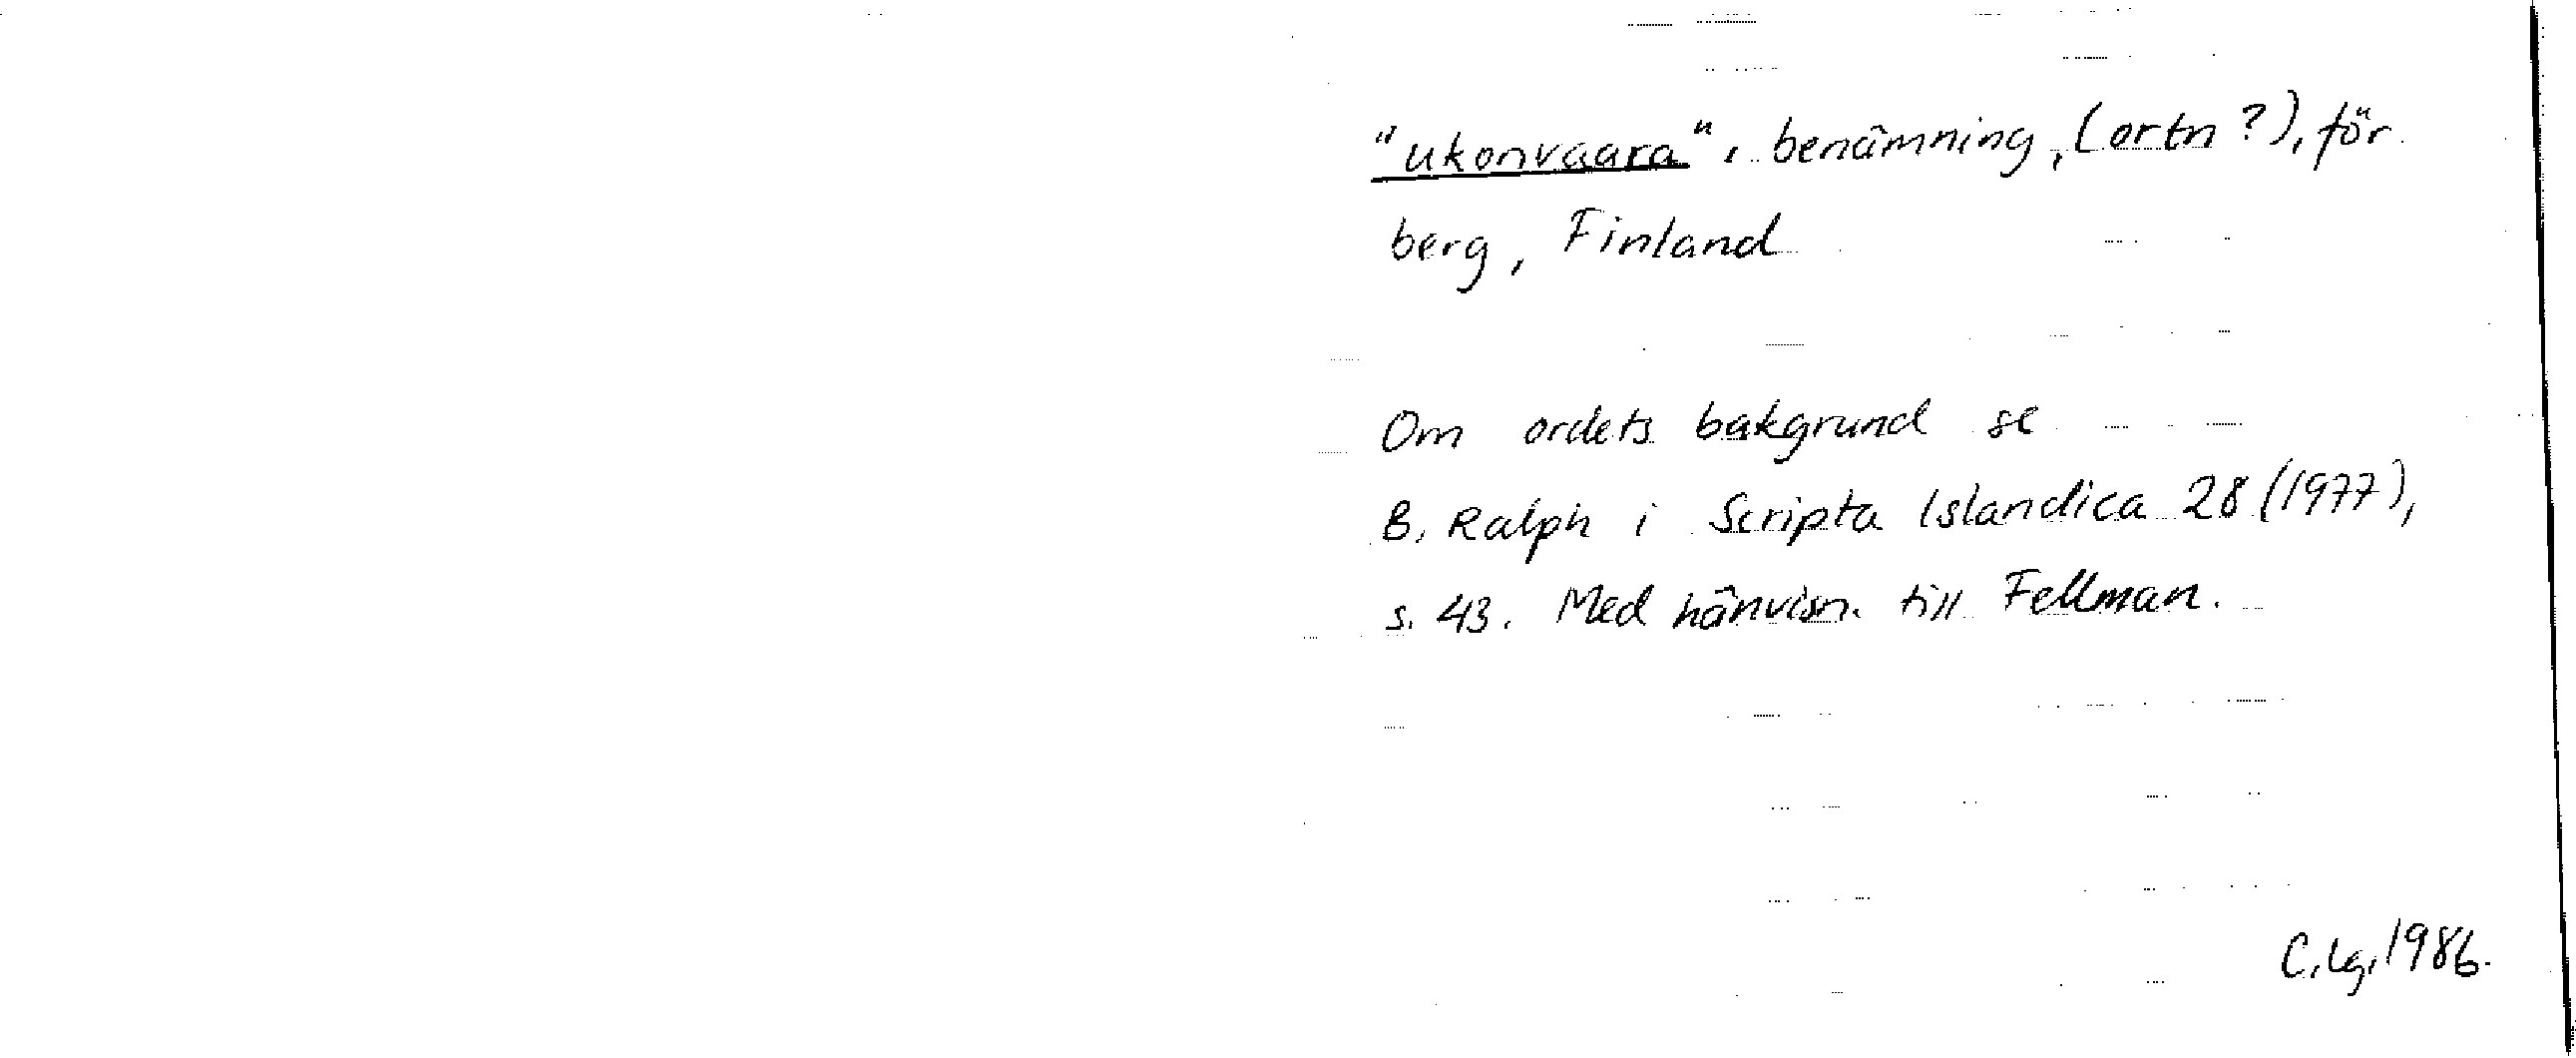 "ukonvaara", benämning, (ortn?), för
berg, Finland
Om ordets bakgrund se
B. Ralph i Scripta Islandica 28 (1977),
s. 43. Med hänvisn. till Fellman.
C. Lg. 1986.